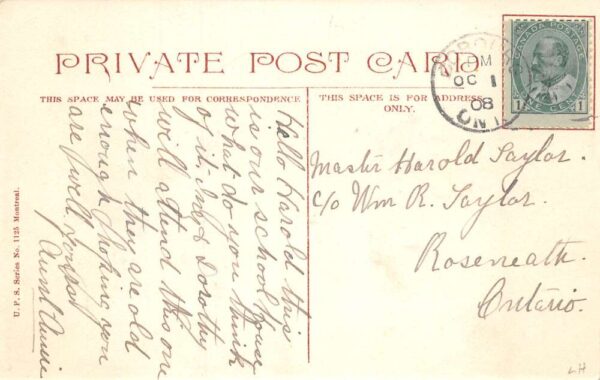 PRIVATE POST CARD
THIS SPACE MAY BE USED FOR CORRESPONDENCE
THIS SPACE IS FOR ADDRESS
ONLY.
Hello Harold this
is our school house
what do you think
of it. & Dorothy
will attend this one
when they are old
enough. Hoping you
are well.
Aunt Annie
Master Harold Taylor.
c/o Wm R. Taylor.
Roseneath.
Ontario.
PM
OC 1
08
ONT
CANADA POSTAGE
1 ONE CENT 1
U. P. S. Series No. 1125 Montreal.
LH